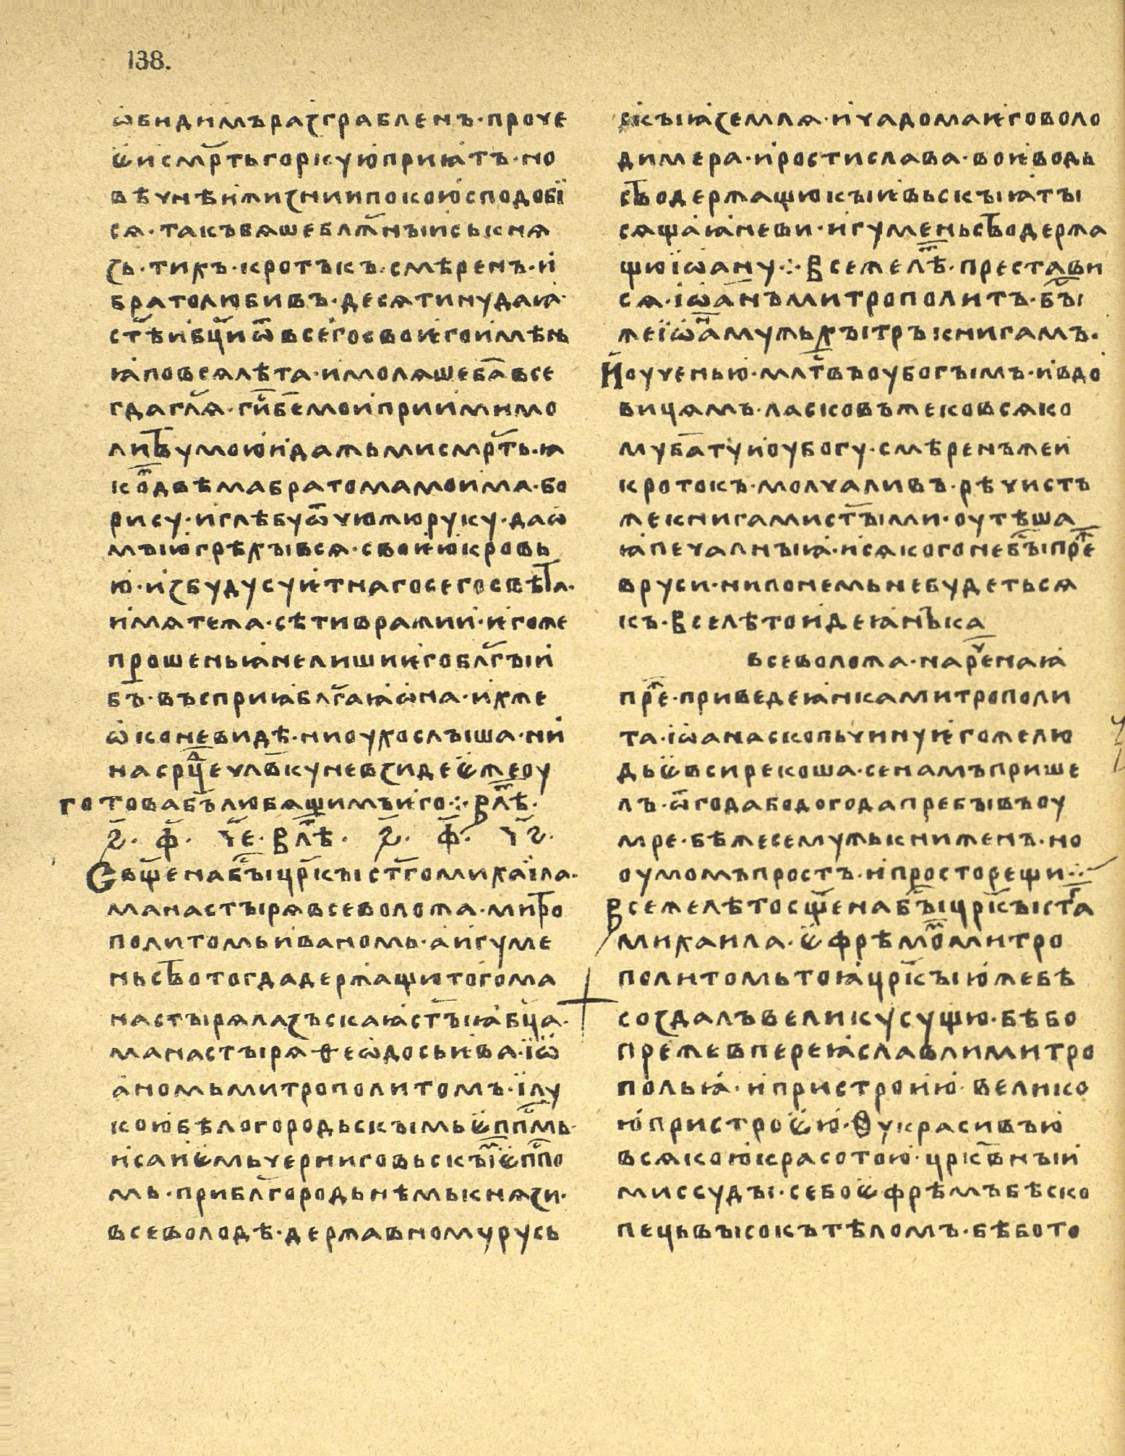 138.
ѡбидимъразграбленъ·проче
ѥисмр҃тьгоркуюприꙗтъ·но
вѣчнѣижизниипокоюсподобї
сѧ·такъвѧшебл҃жныиськнѧ
зь·тихъ·кротъкъ·смѣренъ·и
братолюбивъ·десѧтинудаꙗ
ст҃ѣибц҃иѿвсегосвоѥгоимѣнь
ꙗповсѧлѣта·имолѧшеба҃все
гдагл҃ѧ·ги҃бе҃моипрііимимо
литвумоюидажьмисмр҃ть·ꙗ
кодвѣмабратомамоима·бо
рису·иглѣбуѿчюжюруку·даѡ
мыюгрѣхывсѧ·своѥюкровь
ю·избудусуѥтнагосегосвѣта·
имѧтежа·сѣтивражии·ѥгоже
прошеньꙗнелишиѥгоблг҃ыи
бъ·въсприꙗблг҃аꙗѡна·ихже
ѡконевидѣ·ниоухослыша·ни
насрц҃ечлв҃куневзидеѥжеоу
готовабъ҃любѧщимъиго·:·влѣ҃·
҂ѕ҃·ф҃·че҃·влѣ҃·҂ѕ҃·ф҃·чз҃·
Свѧщ҃енабы҃црк҃ыст҃гомихаїла·
манастырѧвсеволожа·митро
политомьиваномь·аигуме
ньствотогдадержащютогома
настырѧлазъскаꙗст҃ыꙗбц҃а·
манастырѧ·ѳеѡдосьѥва·їѡ
аномьмитрополитомъ·їлу
коюбѣлогородьскымьѥпп҃мь·
исаиѥмьчерниговьскы҃їѥпп҃о
мь·приблг҃ородьнѣмькнѧзи·
всеволодѣ·державномурусь
скыꙗземлѧ·ичадомаѥговоло
димера·иростислава·воѥводь
стводержащюкыѥвьскыꙗты
сѧщаꙗꙗневи·игуме҃ньстводержа
щюїѡану·:·всежелѣ҃·престави
сѧ·їѡанъмитрополитъ·бы҃
жеїѡна҃мужьхытръкнигамъ·
иоученью·млтвъоубогымъ·ивдо
вицѧмъ·ласковъжековсѧко
мубатуиоубогу·смѣренъжеи
кротокъ·молчаливъ·рѣчистъ
жекнигамист҃ыми·оутѣша
ꙗпечалныꙗ·исѧкогонебы҃прѣ҃
вруси·нипонемьнебудетьсѧ
къ·вселѣтоидеꙗнъка
всеволожа·нарч҃енаꙗ
прѣ҃·приведеꙗнкамитрополи
та·їѡанаскопьчинуѥгожелю
дьѥвсирекоша·сенамъприше
лъ·ѿгодабодогодапребывъоу
мре·бѣжесемужькниженъ·но
оумомъпростъ·ипросторещи·:·
всежелѣтосщ҃енабы҃црк҃ыст҃а
михаила·ѥфрѣмо҃митро
политомьтоꙗцрк҃ыюжебѣ
создалъвеликусущю·бѣбо
прежевпереꙗславлимитро
польꙗ·ипристроию·велико
юпристроѥю·ѳукрасивъю
всѧкоюкрасотою·црк҃вныи
миссуды·себоѥфрѣмъбѣско
пецьвысокътѣломъ·бѣбото